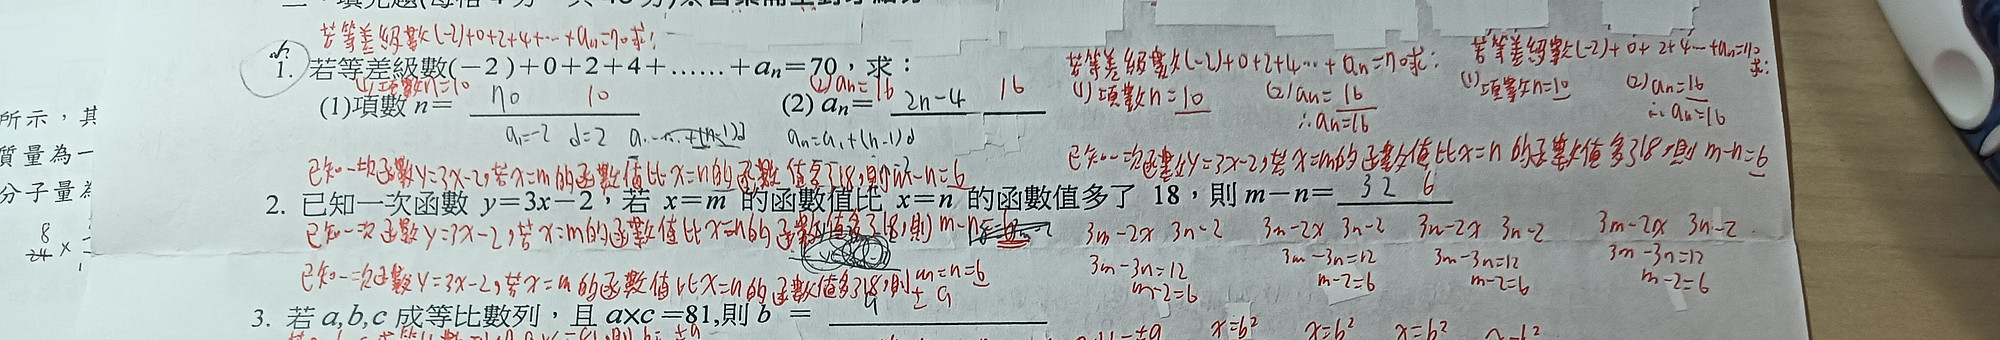 若等差級數(-2)+0+2+4+…+an=70求:
1. 若等差級數(-2)+0+2+4+……+an=70,求:
若等差級數(-2)+0+2+4…+an=70求:
若等差級數(-2)+0+2+4…+an=70求:
(1)項數n=10
(2)an=16
(1)項數n= 70 10
(2) an= 2n-4 16
(1)項數n=10 (2)an=16
∴an=16
(1)項數n=10 (2)an=16
∴an=16
a1=-2 d=2
an=a1+(n-1)d
所示,其
質量為一
分子量為
8
24 ×
已知一次函數y=3x-2,若x=m的函數值比x=n的函數值多了18,則m-n=6
已知一次函數y=3x-2,若x=m的函數值比x=n的函數值多了18,則m-n=6
2. 已知一次函數 y=3x-2,若 x=m 的函數值比 x=n 的函數值多了 18,則 m-n= 32 6
已知一次函數y=3x-2,若x=m的函數值比x=n的函數值多了18,則m-n=
3m-2x 3n-2 3m-2x 3n-2 3m-2x 3n-2 3m-2x 3n-2
3m-3n=12 3m-3n=12 3m-3n=12 3m-3n=12
m-2=6 m-2=6 m-2=6 m-2=6
已知一次函數y=3x-2,若x=m的函數值比x=n的函數值多了18,則m-n=6
3. 若 a,b,c 成等比數列,且 a×c=81,則 b = 9 ±9
x=b² x=b² x=b² x=b²